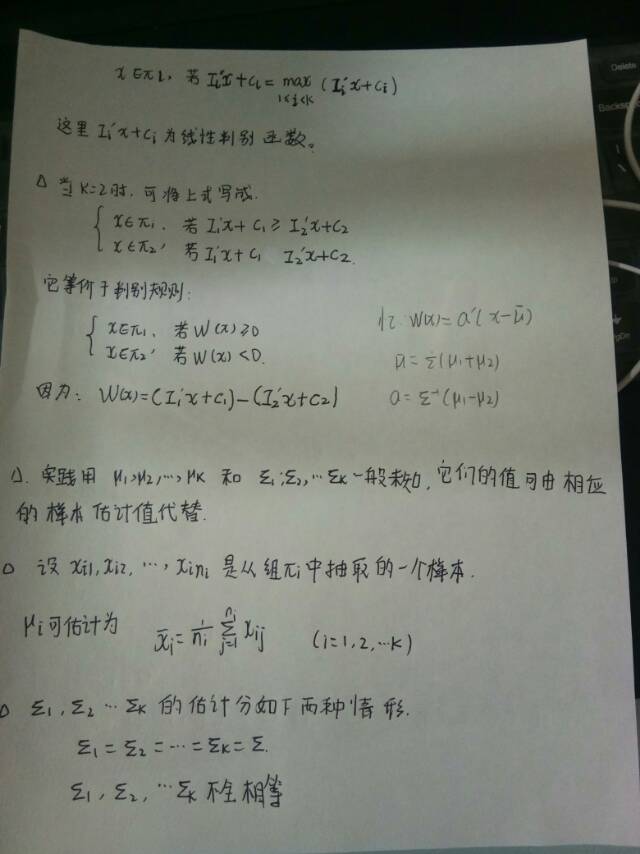 x∈πl, 若 I_i'x+c_i = max_{1≤i≤k} (I_i'x+c_i)
这里 I_i'x+c_i 为线性判别函数。
△ 当K=2时, 可将上式写成.
{ x∈π1, 若 I1'x + c1 ≥ I2'x+c2
x∈π2, 若 I1'x+c1 I2'x+c2.
它等价于判别规则:
{ x∈π1, 若W(x)≥0
x∈π2, 若W(x)<0.
记: W(x)=a'(x-μ̄)
μ̄=½(μ1+μ2)
a=Σ⁻¹(μ1-μ2)
因为: W(x)=(I1'x+c1)-(I2'x+c2)
△. 实践用 μ1,μ2,…,μK 和 Σ1,Σ2,…ΣK一般未知, 它们的值可由相应
的样本估计值代替.
△ 设 xi1,xi2,…,xini 是从组πi中抽取的一个样本.
μi可估计为 x̄i=1/ni Σ_{j=1}^{ni} xij (i=1,2,…K)
△ Σ1,Σ2 …ΣK 的估计分如下两种情形.
Σ1=Σ2=…=ΣK=Σ.
Σ1,Σ2,…ΣK 不全相等